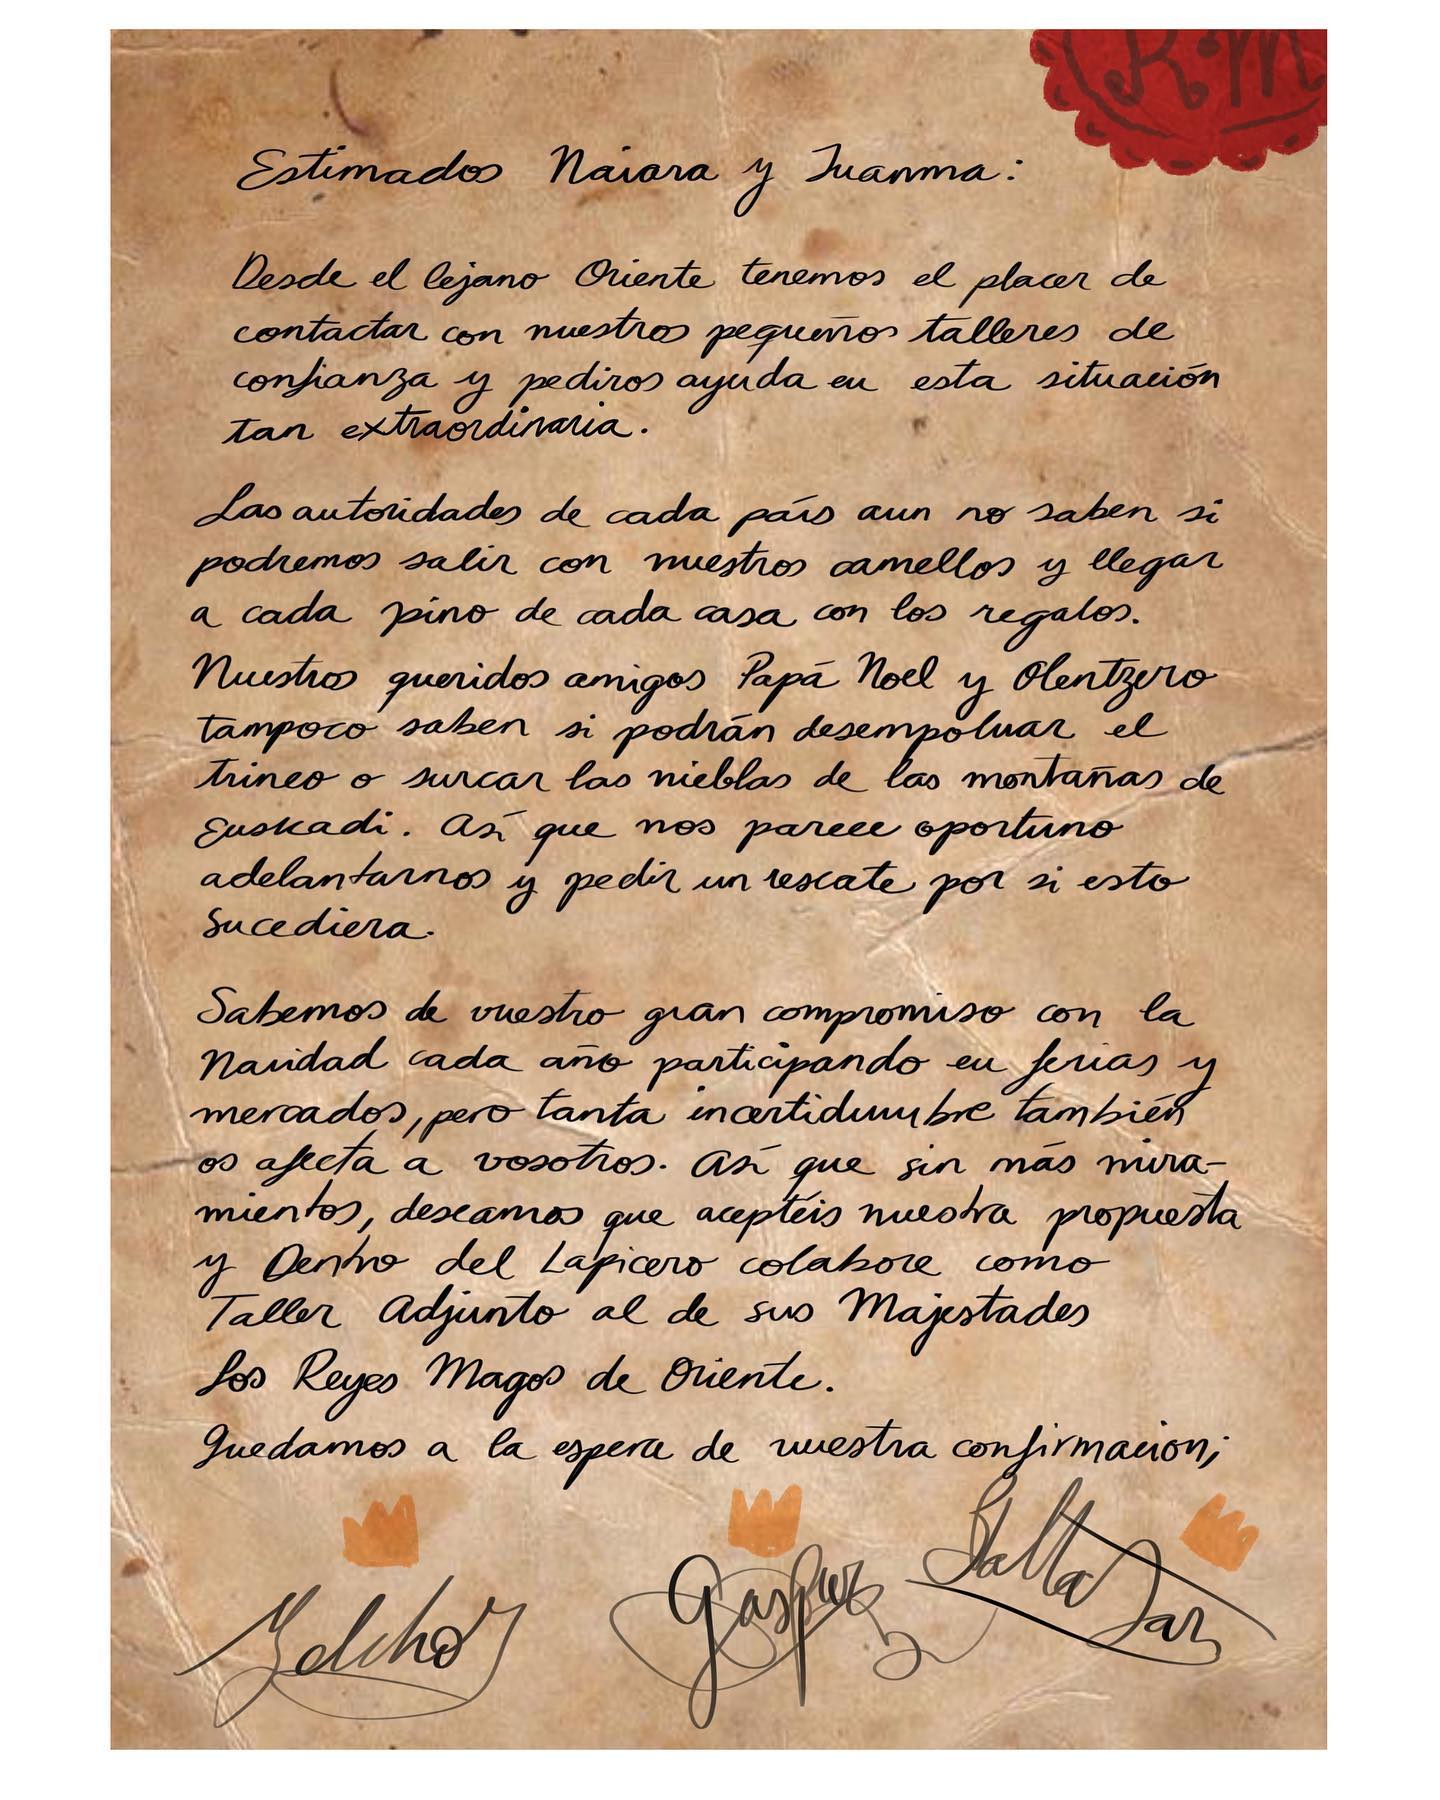 R·M
Estimados Naiara y Juanma:
Desde el lejano Oriente tenemos el placer de
contactar con nuestros pequeños talleres de
confianza y pediros ayuda en esta situación
tan extraordinaria.
Las autoridades de cada país aun no saben si
podremos salir con nuestros camellos y llegar
a cada pino de cada casa con los regalos.
Nuestros queridos amigos Papá Noel y Olentzero
tampoco saben si podrán desempolvar el
trineo o surcar las nieblas de las montañas de
Euskadi. Así que nos parece oportuno
adelantarnos y pedir un rescate por si esto
sucediera.
Sabemos de vuestro gran compromiso con la
Navidad cada año participando en ferias y
mercados, pero tanta incertidumbre también
os afecta a vosotros. Así que sin más mira-
mientos, deseamos que aceptéis nuestra propuesta
y Dentro del Lapicero colabore como
Taller Adjunto al de sus Majestades
Los Reyes Magos de Oriente.
Quedamos a la espera de vuestra confirmación;
Melchor
Gaspar
Baltasar